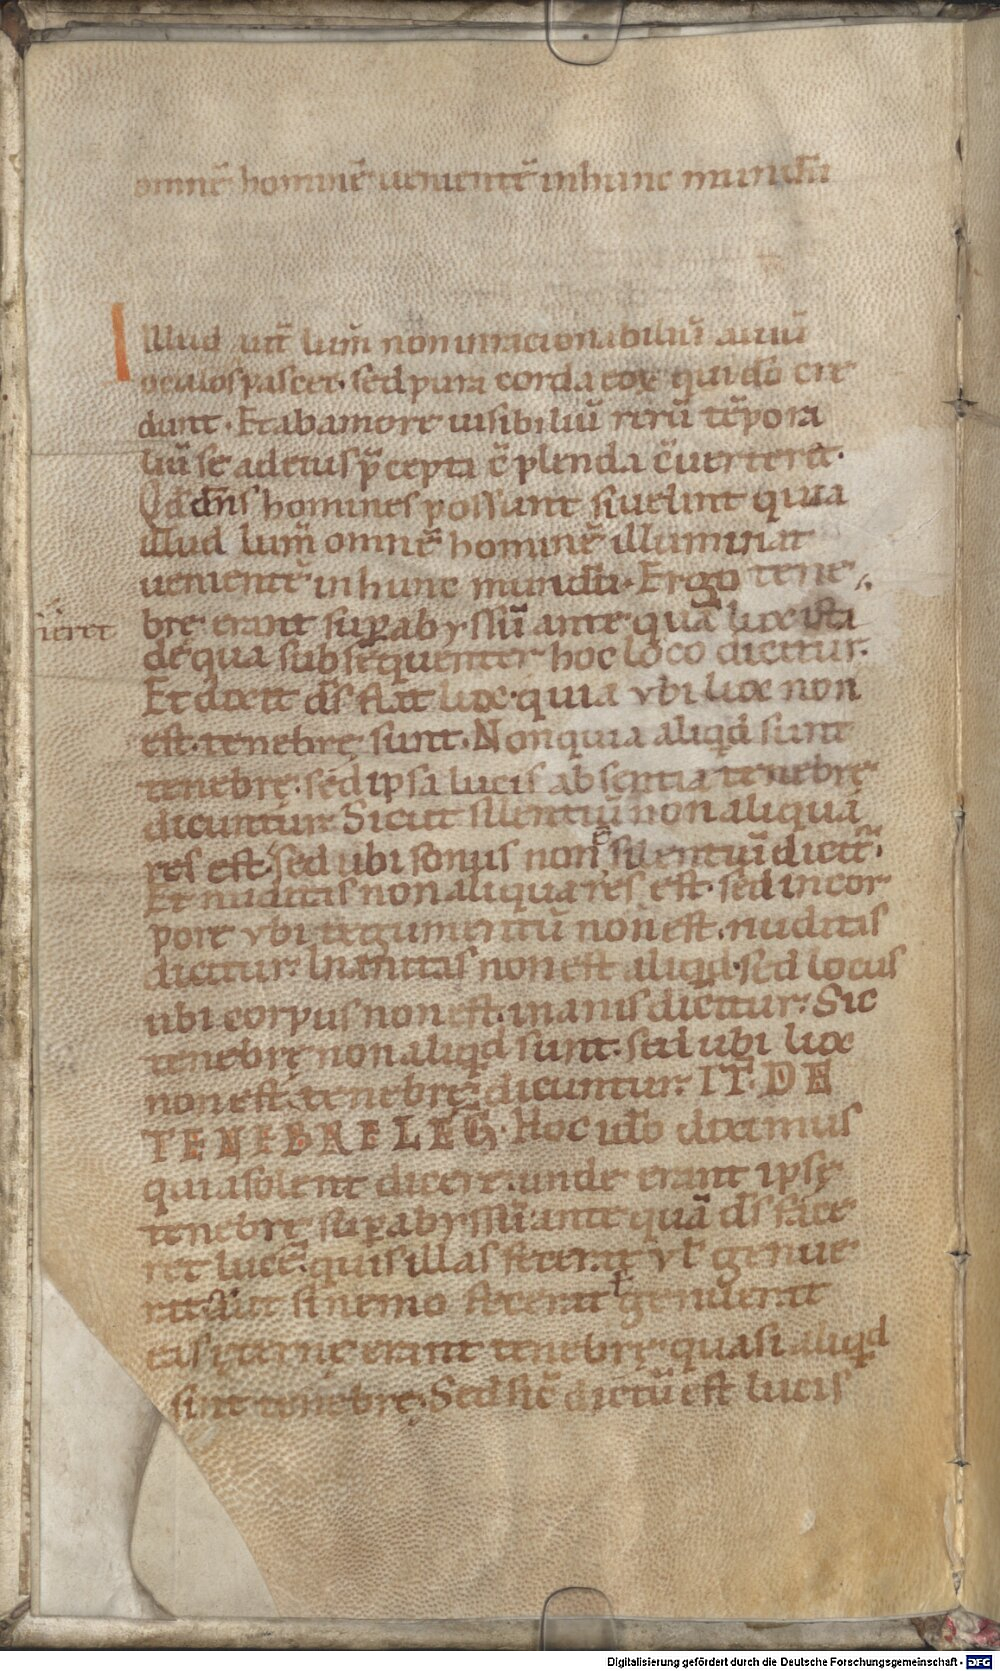 omnē hominē uenientē inhunc mundū
Illud aūt lum̄ non inracionabiliū auiū
oculos pascet. sed pura corda eoꝝ qui dō cre
dunt. Et ab amore uisibiliū rerū tēpora
liū se ad eius p̄cepta c̄plenda c̄uerterēt.
Qd ōns homines possunt si uelint quia
illud lum̄ omnē hominē illuminat
uenientē in hunc mundū. Ergo tene
brę erant suꝑ abyssū ante quā lux ista
ueret
de qua subsequenter hoc loco dicitur.
Et dixit dś fiat lux. quia vbi lux non
est. tenebrę sunt. Non quia aliqd sunt
tenebrę. sed ipsa lucis absentia tenebrę
dicuntur. Sicut silentiū non aliquā
res est. sed ubi sonus non ē silentiū dicit̄.
Et nuditas non aliqua res est. sed in cor
pore vbi tegumentū non est. nuditas
dicitur. Inanitas non est aliqd. sed locus
ubi corpus non est. inanis dicitur. Sic
tenebrę non aliqd sunt. sed ubi lux
non est. tenebrę dicuntur. IT. DE
TENEBRE LEG. Hoc ideo diximus
quia solent dicere. unde erant ipsę
tenebrę suꝑ abyssū ante quā dś face
ret lucē. quis illas fecerat vl genue
rat. aut si nemo fecerat ł genuerat
eas ęternę erant tenebrę. quasi aliqd
sint tenebrę. Sed sic dictū est lucis
Digitalisierung gefördert durch die Deutsche Forschungsgemeinschaft - DFG